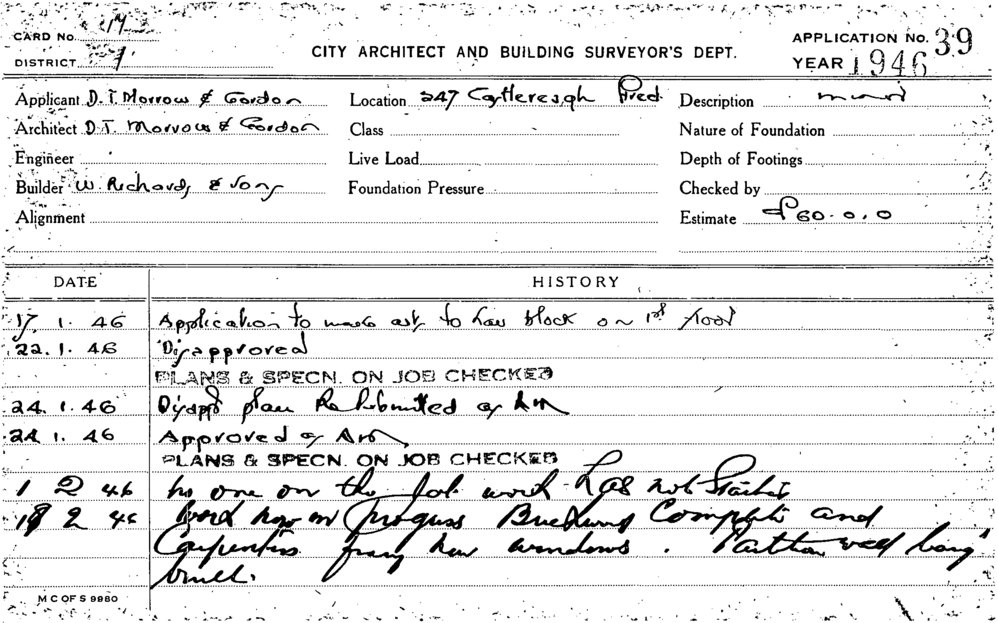 CARD No. 17
DISTRICT 7
CITY ARCHITECT AND BUILDING SURVEYOR'S DEPT.
APPLICATION No. 39
YEAR 1946
Applicant D.T. Morrow & Gordon
Location 247 Castlereagh
Description
Architect D.T. Morrow & Gordon
Class
Nature of Foundation
Engineer
Live Load
Depth of Footings
Builder W. Richards & Sons
Foundation Pressure
Checked by
Alignment
Estimate £60.0.0
DATE HISTORY
17. 1. 46 Application to to block on 1st floor
22. 1. 46 Disapproved
PLANS & SPECN. ON JOB CHECKED
24. 1. 46 Disappd plan Resubmitted
24. 1. 46 Approved
PLANS & SPECN. ON JOB CHECKED
1 2 46 no one on the Job work has not Started
18 2 46 Work now in progress Complete and
Carpenters new windows. wall being
built.
M C OF S 9980